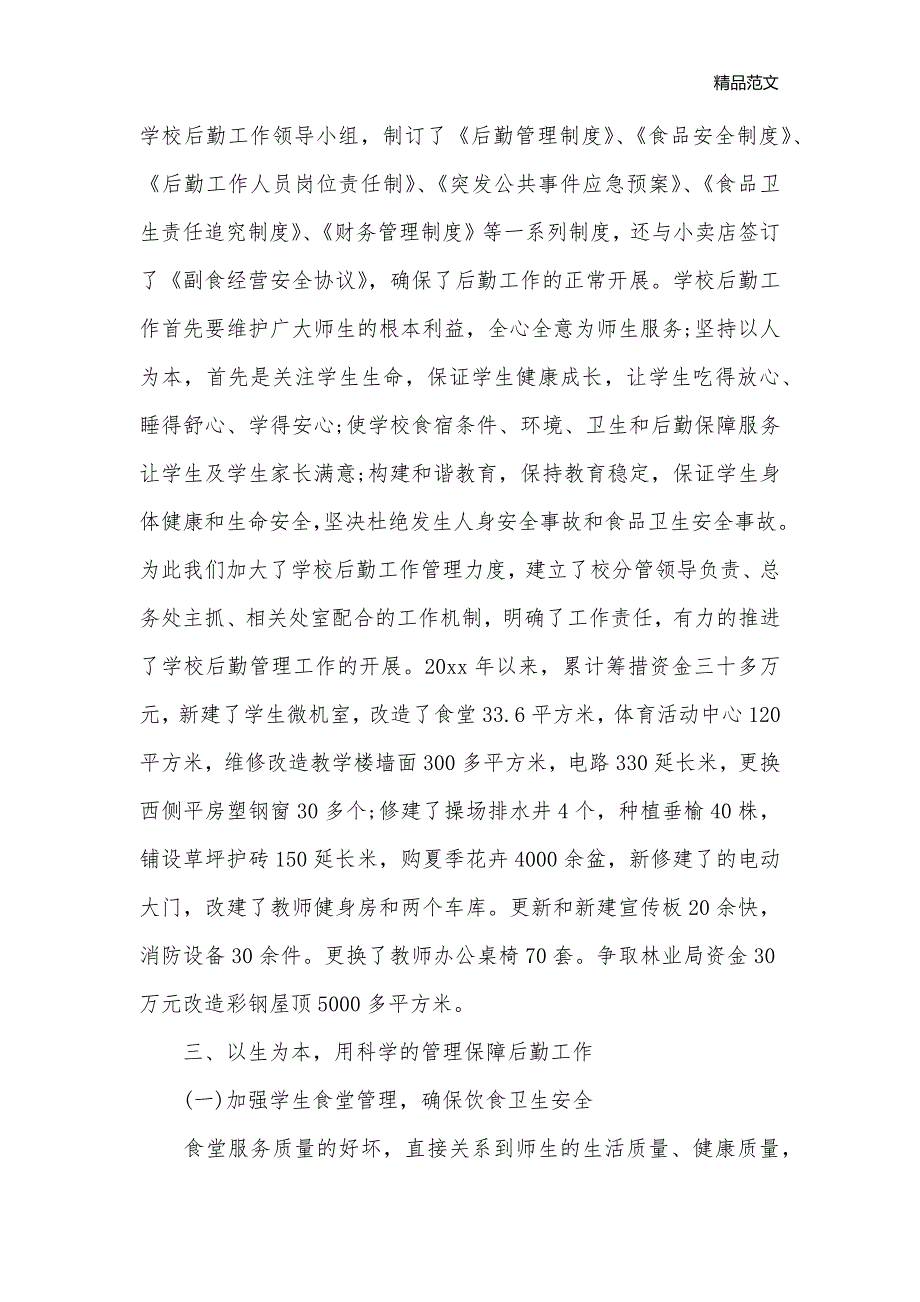 精品范文
学校后勤工作领导小组，制订了《后勤管理制度》、《食品安全制度》、
《后勤工作人员岗位责任制》、《突发公共事件应急预案》、《食品卫
生责任追究制度》、《财务管理制度》等一系列制度，还与小卖店签订
了《副食经营安全协议》，确保了后勤工作的正常开展。学校后勤工
作首先要维护广大师生的根本利益，全心全意为师生服务;坚持以人
为本，首先是关注学生生命，保证学生健康成长，让学生吃得放心、
睡得舒心、学得安心;使学校食宿条件、环境、卫生和后勤保障服务
让学生及学生家长满意;构建和谐教育，保持教育稳定，保证学生身
体健康和生命安全，坚决杜绝发生人身安全事故和食品卫生安全事故。
为此我们加大了学校后勤工作管理力度，建立了校分管领导负责、总
务处主抓、相关处室配合的工作机制，明确了工作责任，有力的推进
了学校后勤管理工作的开展。20xx 年以来，累计筹措资金三十多万
元，新建了学生微机室，改造了食堂 33.6 平方米，体育活动中心 120
平方米，维修改造教学楼墙面 300 多平方米，电路 330 延长米，更换
西侧平房塑钢窗 30 多个;修建了操场排水井 4 个，种植垂榆 40 株，
铺设草坪护砖 150 延长米，购夏季花卉 4000 余盆，新修建了的电动
大门，改建了教师健身房和两个车库。更新和新建宣传板 20 余快，
消防设备 30 余件。更换了教师办公桌椅 70 套。争取林业局资金 30
万元改造彩钢屋顶 5000 多平方米。
三、以生为本，用科学的管理保障后勤工作
(一)加强学生食堂管理，确保饮食卫生安全
食堂服务质量的好坏，直接关系到师生的生活质量、健康质量，